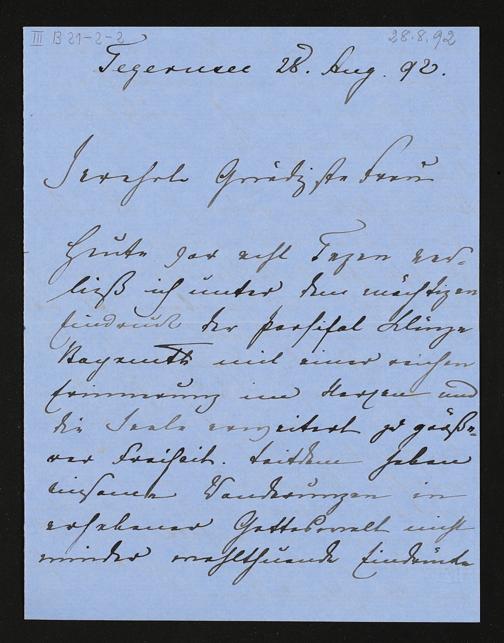 III B 21-2-2
28.8.92
Tegernsee 28. Aug. 92.
Verehrte Gnädigste Frau
Heute vor acht Tagen ver-
ließ ich unter dem mächtigen
Eindruck der Parsifal Klänge
Bayreuth mit einer reichen
Erinnerung im Herzen und
die Seele erweitert zu größe-
rer Freiheit. Seitdem haben
einsame Wanderungen in
erhabener Gotteswelt nicht
minder wohlthuende Eindrücke